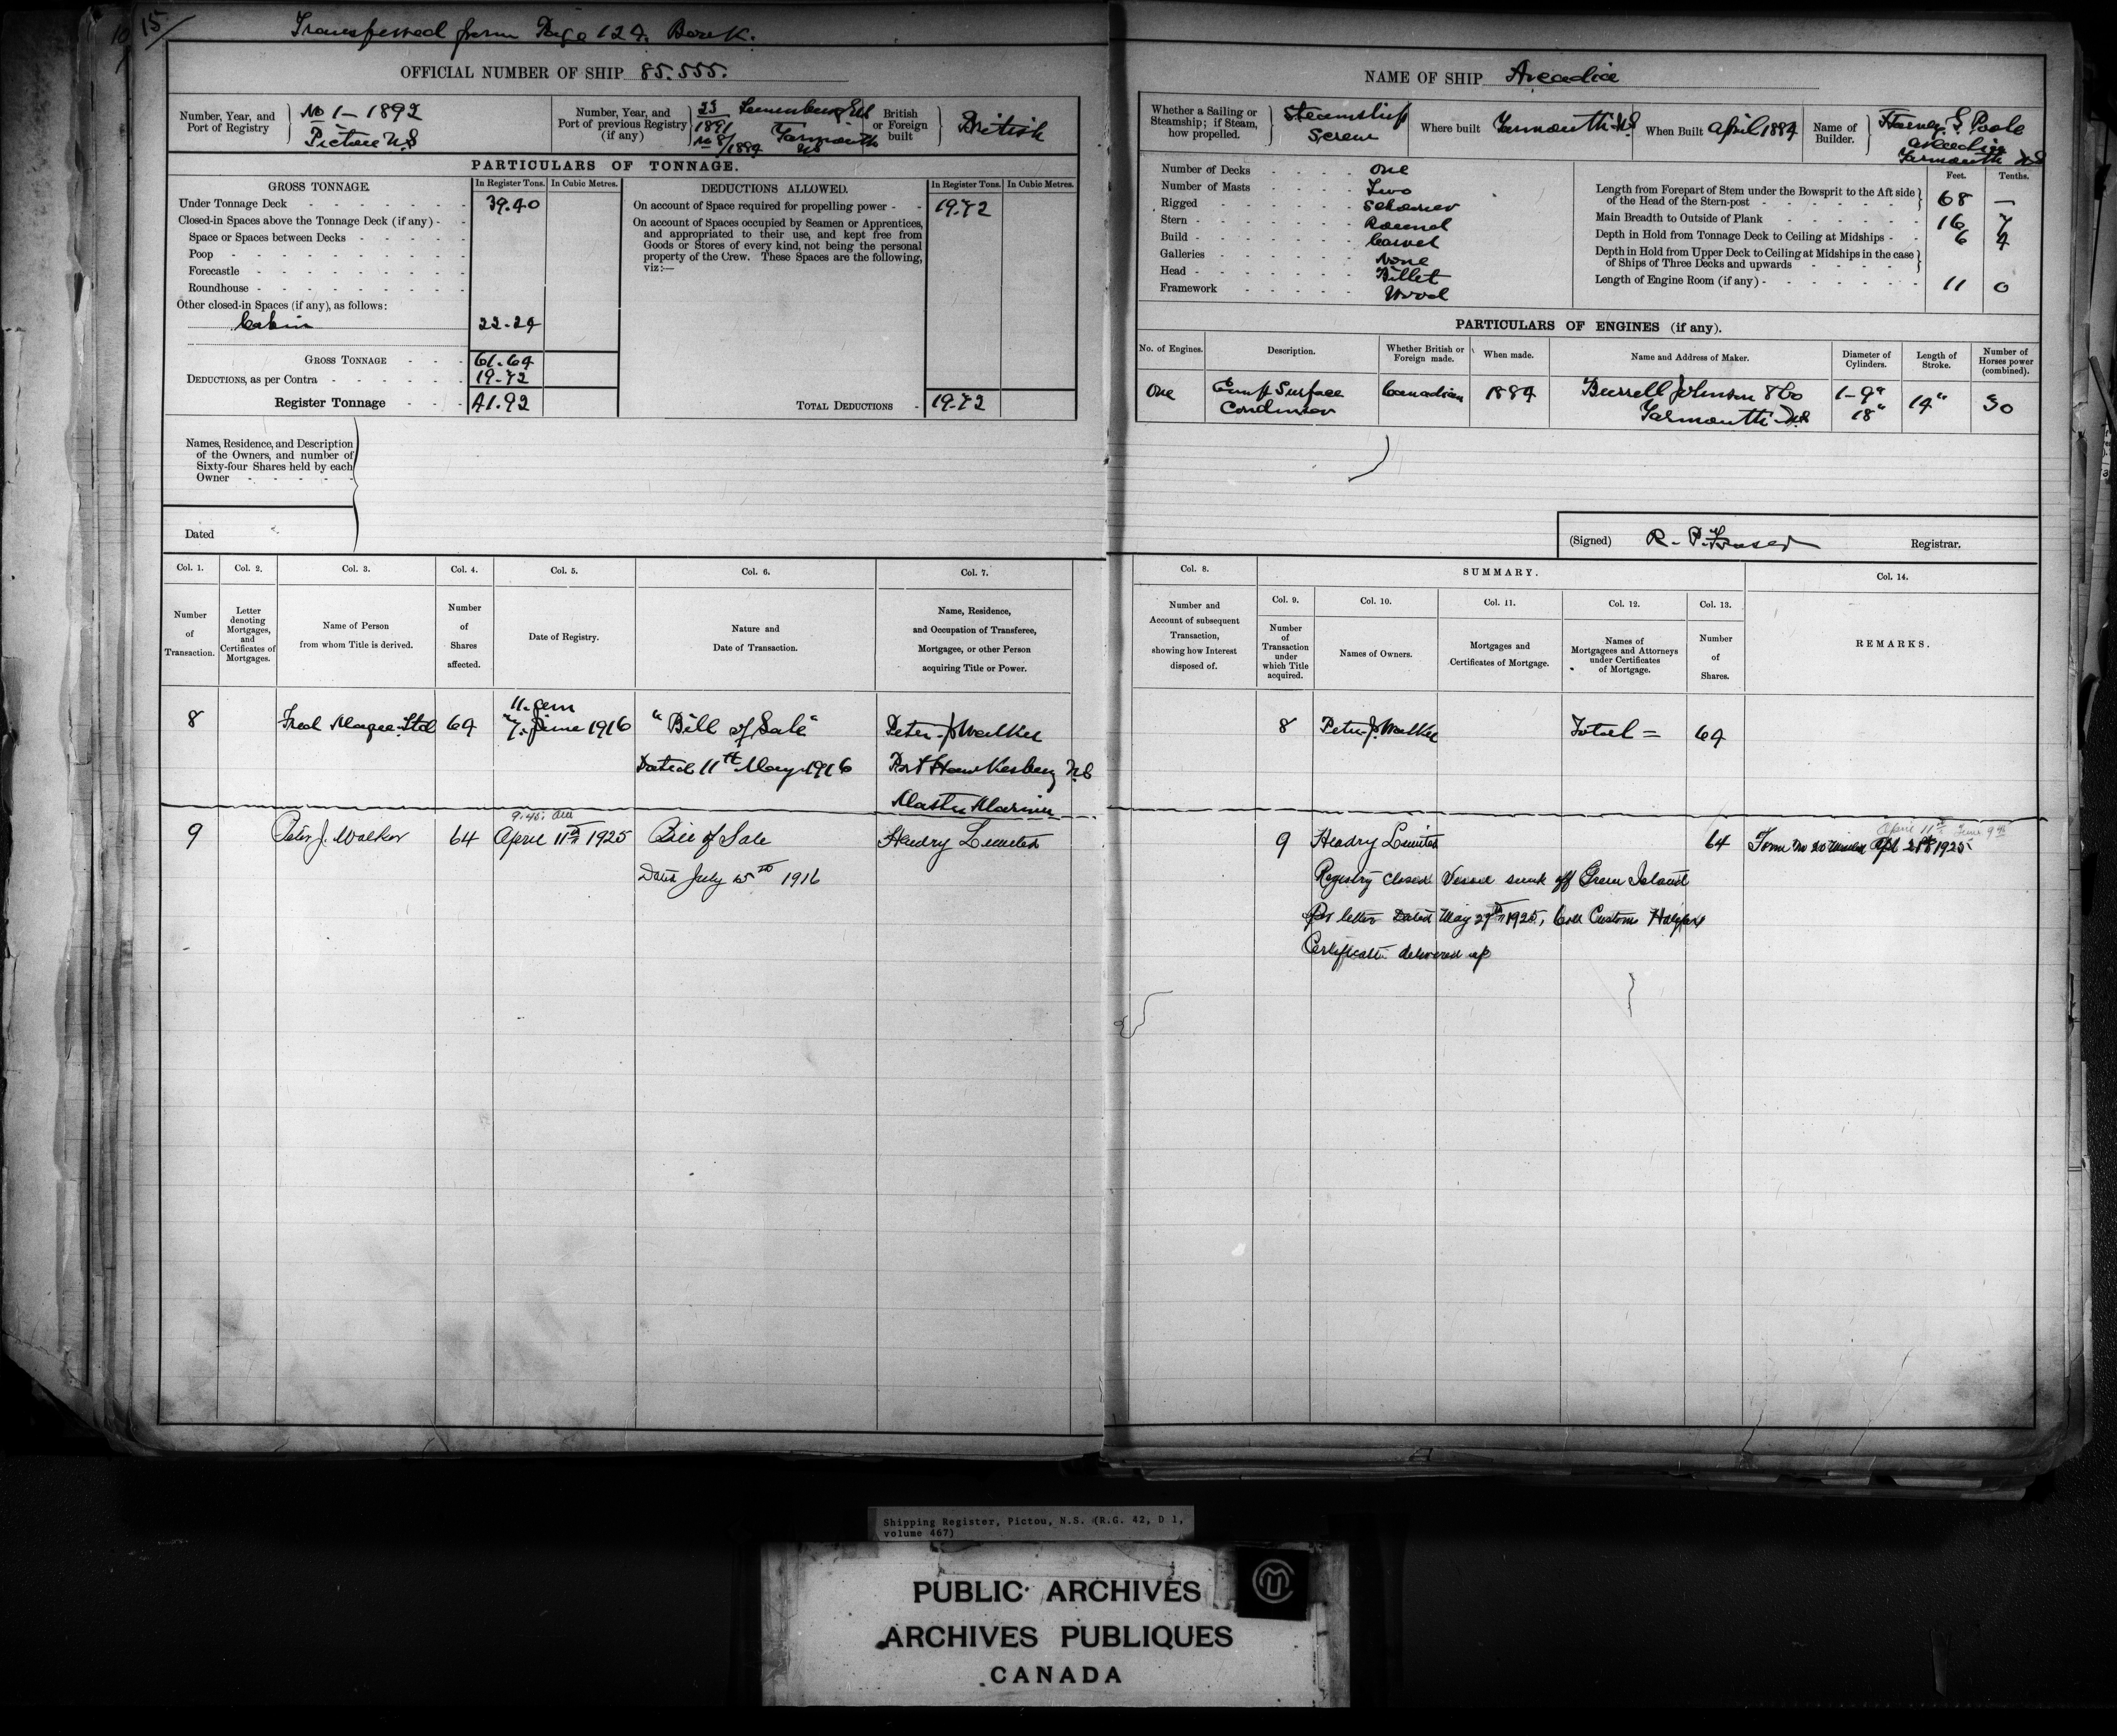 15/
Transferred from Page 124. Book.
OFFICIAL NUMBER OF SHIP 85.555.
Number, Year, and
Port of Registry
No 1 - 1892
Pictou N.S
Number, Year, and
Port of previous Registry
(if any)
23 Lunenburg N.S
1891
No 8/1884 Yarmouth
NS
British
or Foreign
built
British
PARTICULARS OF TONNAGE.
GROSS TONNAGE. In Register Tons. In Cubic Metres.
Under Tonnage Deck 39.40
Closed-in Spaces above the Tonnage Deck (if any)
Space or Spaces between Decks
Poop
Forecastle
Roundhouse
Other closed-in Spaces (if any), as follows:
Cabin 22.24
GROSS TONNAGE 61.64
DEDUCTIONS, as per Contra 19.72
Register Tonnage 41.92
DEDUCTIONS ALLOWED. In Register Tons. In Cubic Metres.
On account of Space required for propelling power 19.72
On account of Spaces occupied by Seamen or Apprentices,
and appropriated to their use, and kept free from
Goods or Stores of every kind, not being the personal
property of the Crew. These Spaces are the following,
viz:—
TOTAL DEDUCTIONS 19.72
Names, Residence, and Description
of the Owners, and number of
Sixty-four Shares held by each
Owner
Dated
Col. 1. Col. 2. Col. 3. Col. 4. Col. 5. Col. 6. Col. 7.
Number
of
Transaction.
Letter
denoting
Mortgages,
and
Certificates of
Mortgages.
Name of Person
from whom Title is derived.
Number
of
Shares
affected.
Date of Registry.
Nature and
Date of Transaction.
Name, Residence,
and Occupation of Transferee,
Mortgagee, or other Person
acquiring Title or Power.
8 Fred Magee Ltd 64 7. June 1916 "Bill of Sale" Peter J Walker
Dated 11th May 1916 Port Hawkesbury
Master Mariner
9.45. am
9 Peter J. Walker 64 April 11th 1925 Bill of Sale Hendry Limited
Dated July 15th 1916
NAME OF SHIP Arcadia
Whether a Sailing or
Steamship; if Steam,
how propelled.
Steamship
Screw
Where built Yarmouth N.S
When Built April 1884
Name of
Builder.
Harvey S Poole
Arcadia
Yarmouth NS
Number of Decks One
Number of Masts Two
Rigged Schooner
Stern Round
Build Carvel
Galleries None
Head Billet
Framework Wood
Feet. Tenths.
Length from Forepart of Stem under the Bowsprit to the Aft side
of the Head of the Stern-post 68 —
Main Breadth to Outside of Plank 16 7
Depth in Hold from Tonnage Deck to Ceiling at Midships 6 4
Depth in Hold from Upper Deck to Ceiling at Midships in the case
of Ships of Three Decks and upwards
Length of Engine Room (if any) 11 0
PARTICULARS OF ENGINES (if any).
No. of Engines. Description. Whether British or
Foreign made. When made. Name and Address of Maker. Diameter of
Cylinders. Length of
Stroke. Number of
Horses power
(combined).
One Comp Surface Canadian 1884 Burrell Johnson & Co 1-9" 14" 30
Condenser Yarmouth NS 18"
(Signed) R. P. Fraser Registrar.
Col. 8. SUMMARY. Col. 14.
Col. 9. Col. 10. Col. 11. Col. 12. Col. 13.
Number and
Account of subsequent
Transaction,
showing how Interest
disposed of.
Number
of
Transaction
under
which Title
acquired.
Names of Owners.
Mortgages and
Certificates of Mortgage.
Names of
Mortgagees and Attorneys
under Certificates
of Mortgage.
Number
of
Shares.
REMARKS.
8 Peter J. Walker Total = 64
April 11th June 9th
9 Hendry Limited 64 Form No 20 1925
Registry Closed Vessel sunk off Green Island
Per letter Dated May 27th 1925, Coll Customs Halifax
Certificate delivered up
Shipping Register, Pictou, N.S. (R.G. 42, D 1,
volume 467)
PUBLIC ARCHIVES
ARCHIVES PUBLIQUES
CANADA